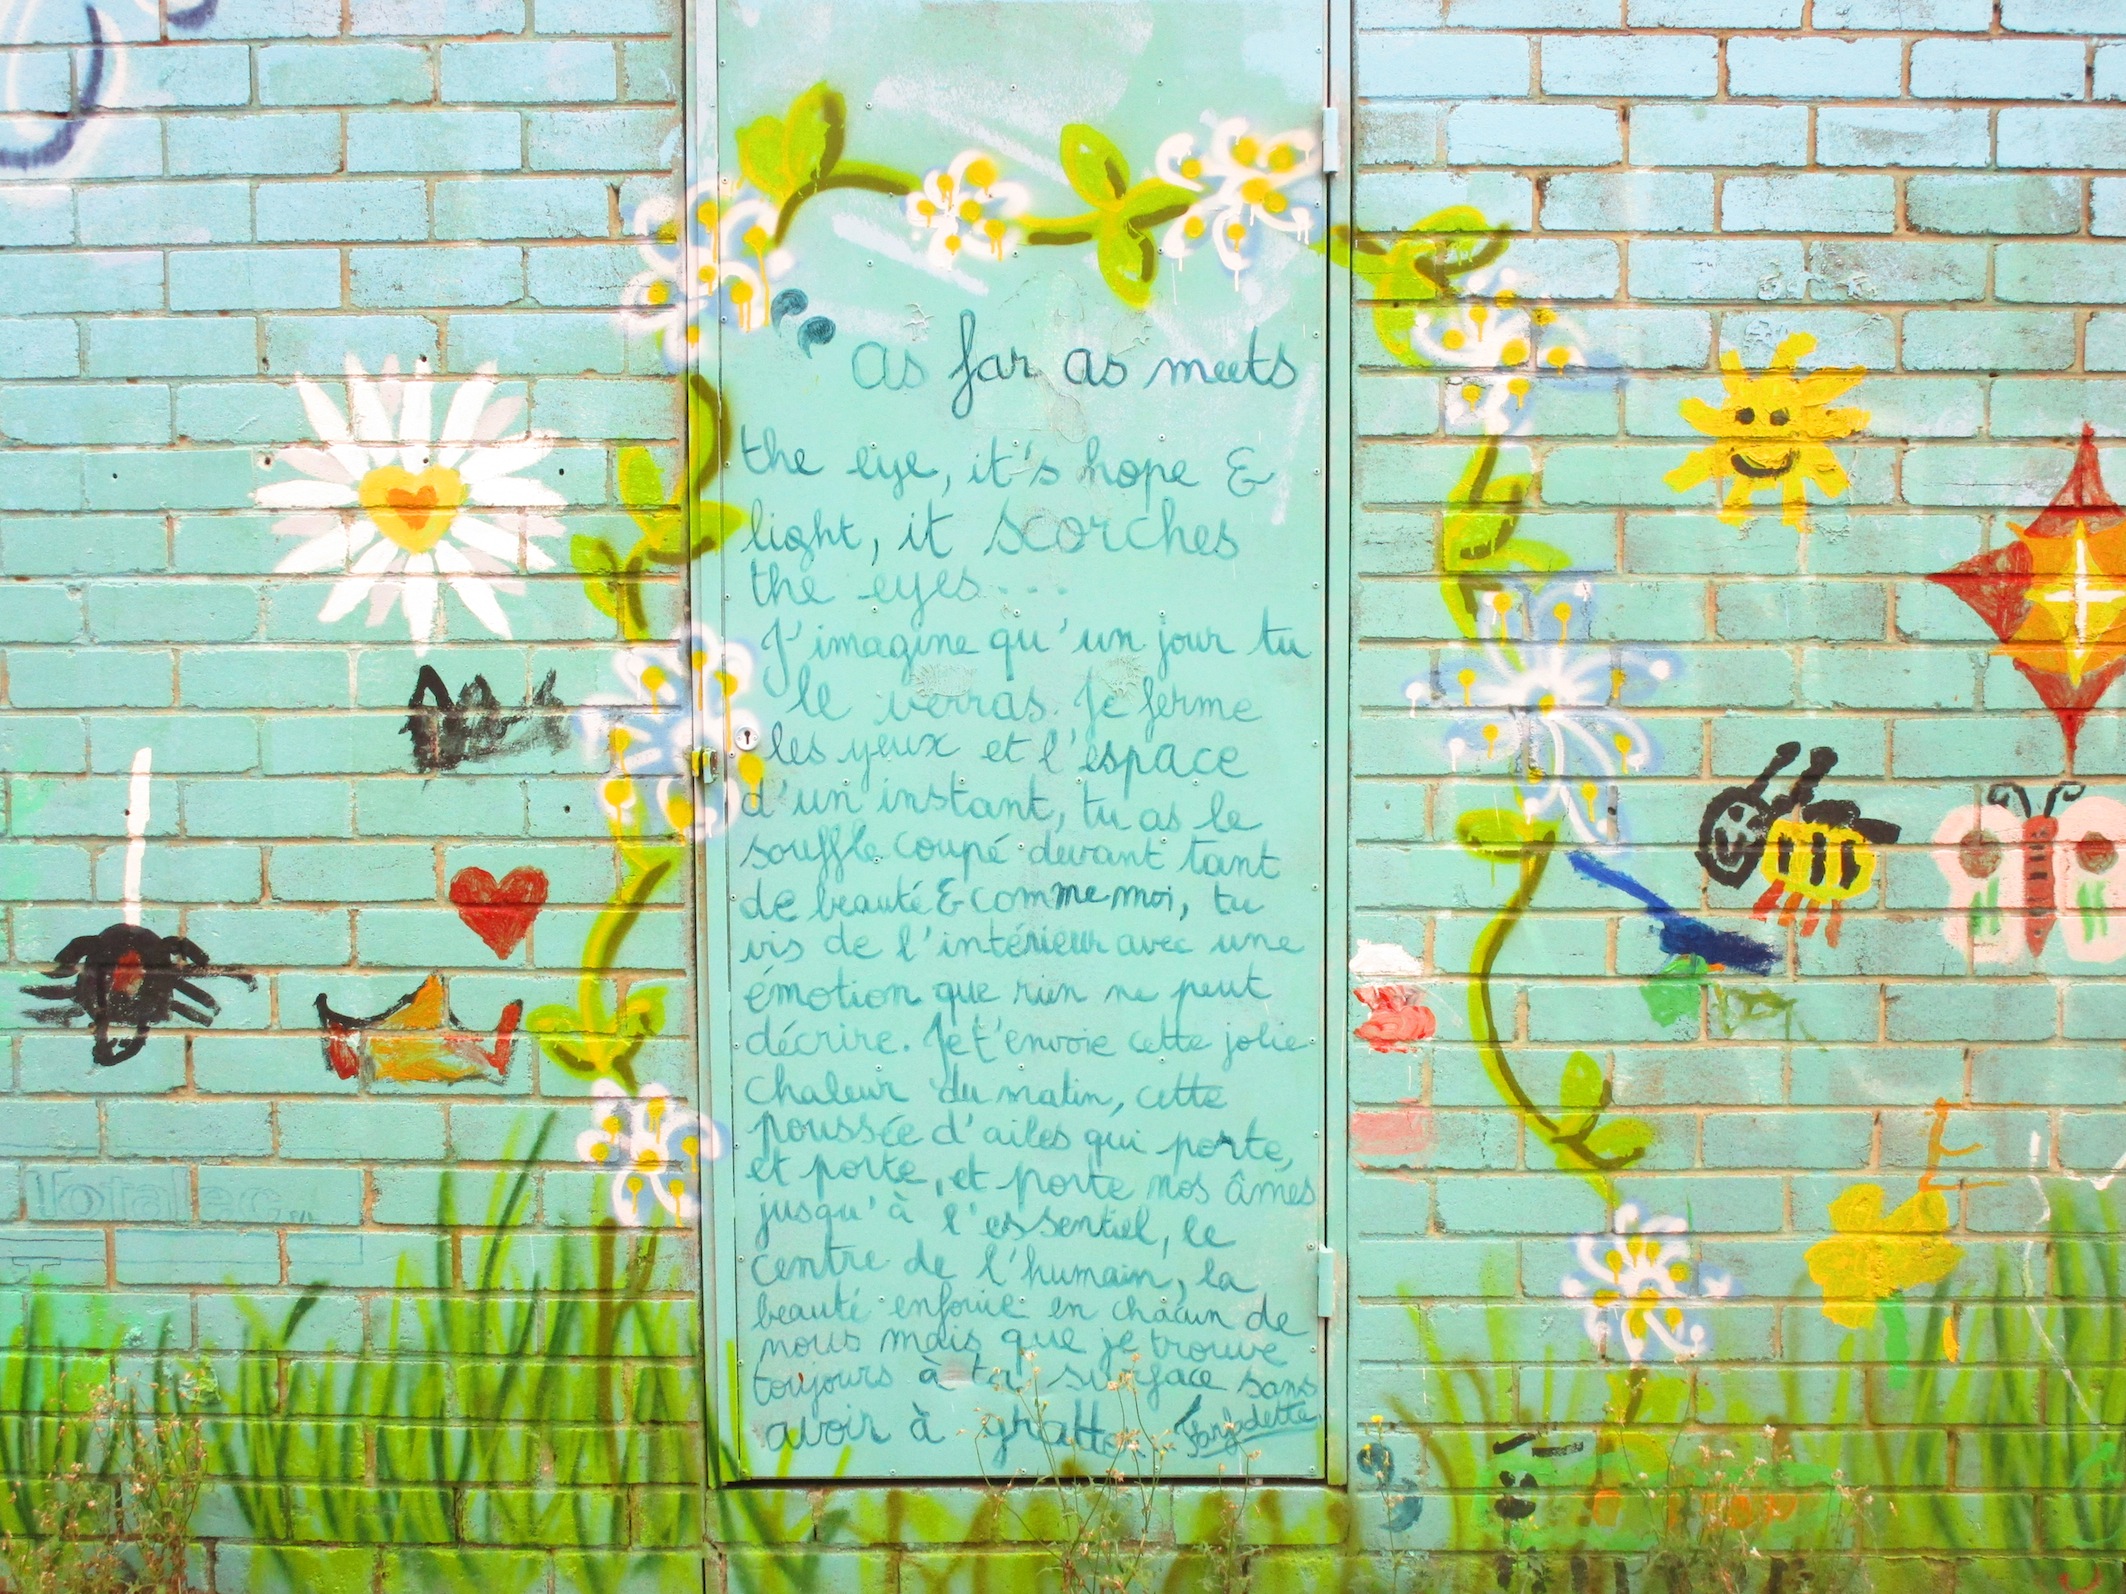 “ as far as meets
the eye, it's hope &
light, it scorches
the eyes...
J'imagine qu'un jour tu
le verras. Je ferme
les yeux et l'espace
d'un instant, tu as le
souffle coupé devant tant
de beauté & comme moi, tu
vis de l'intérieur avec une
émotion que rien ne peut
décrire. Je t'envoie cette jolie
chaleur du matin, cette
poussée d'ailes qui porte,
et porte, et porte nos âmes
jusqu'à l'essentiel, le
centre de l'humain, la
beauté enfouie en chacun de
nous mais que je trouve
toujours à ta surface sans
avoir à gratter.
Totalec